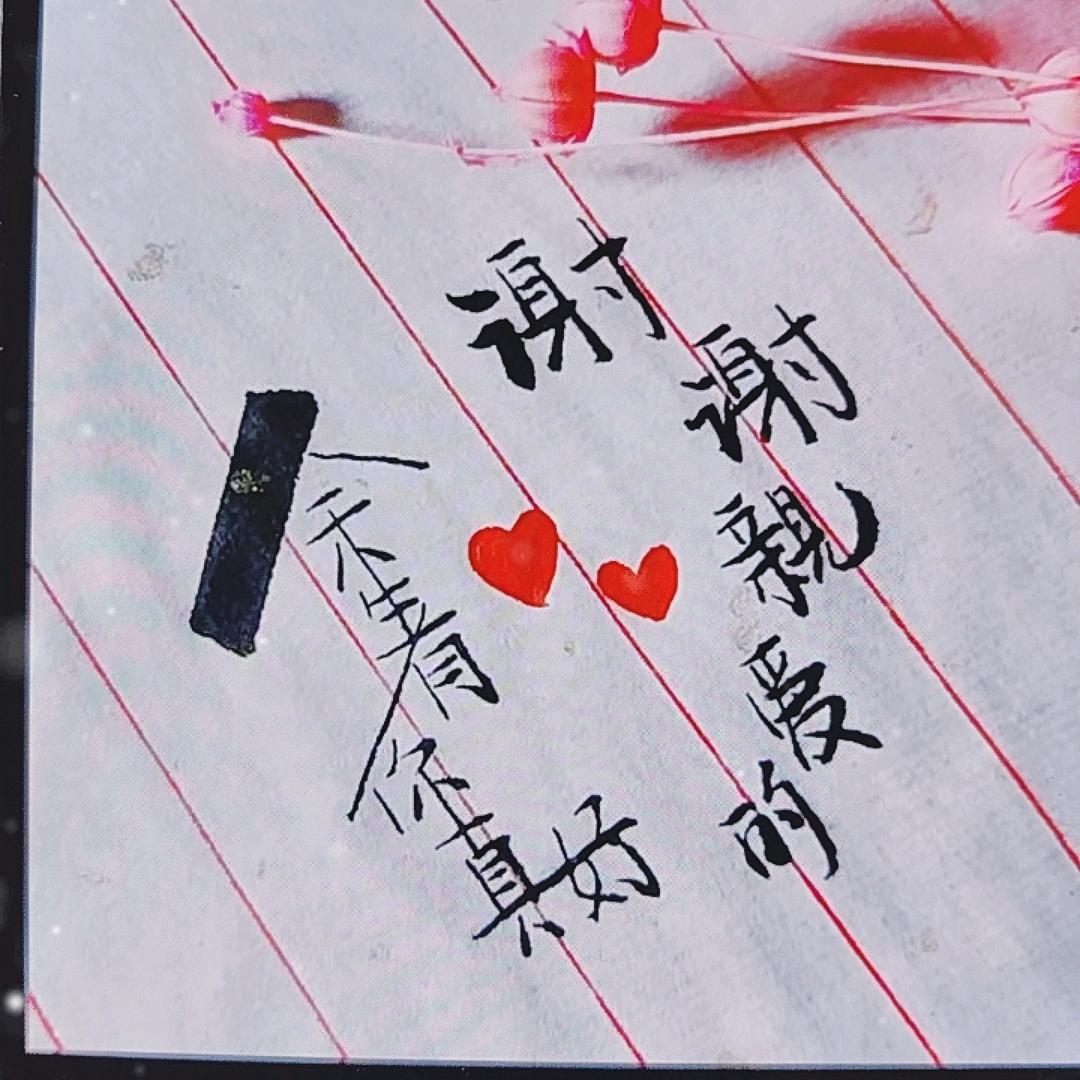 谢谢親爱的
余生有你真好